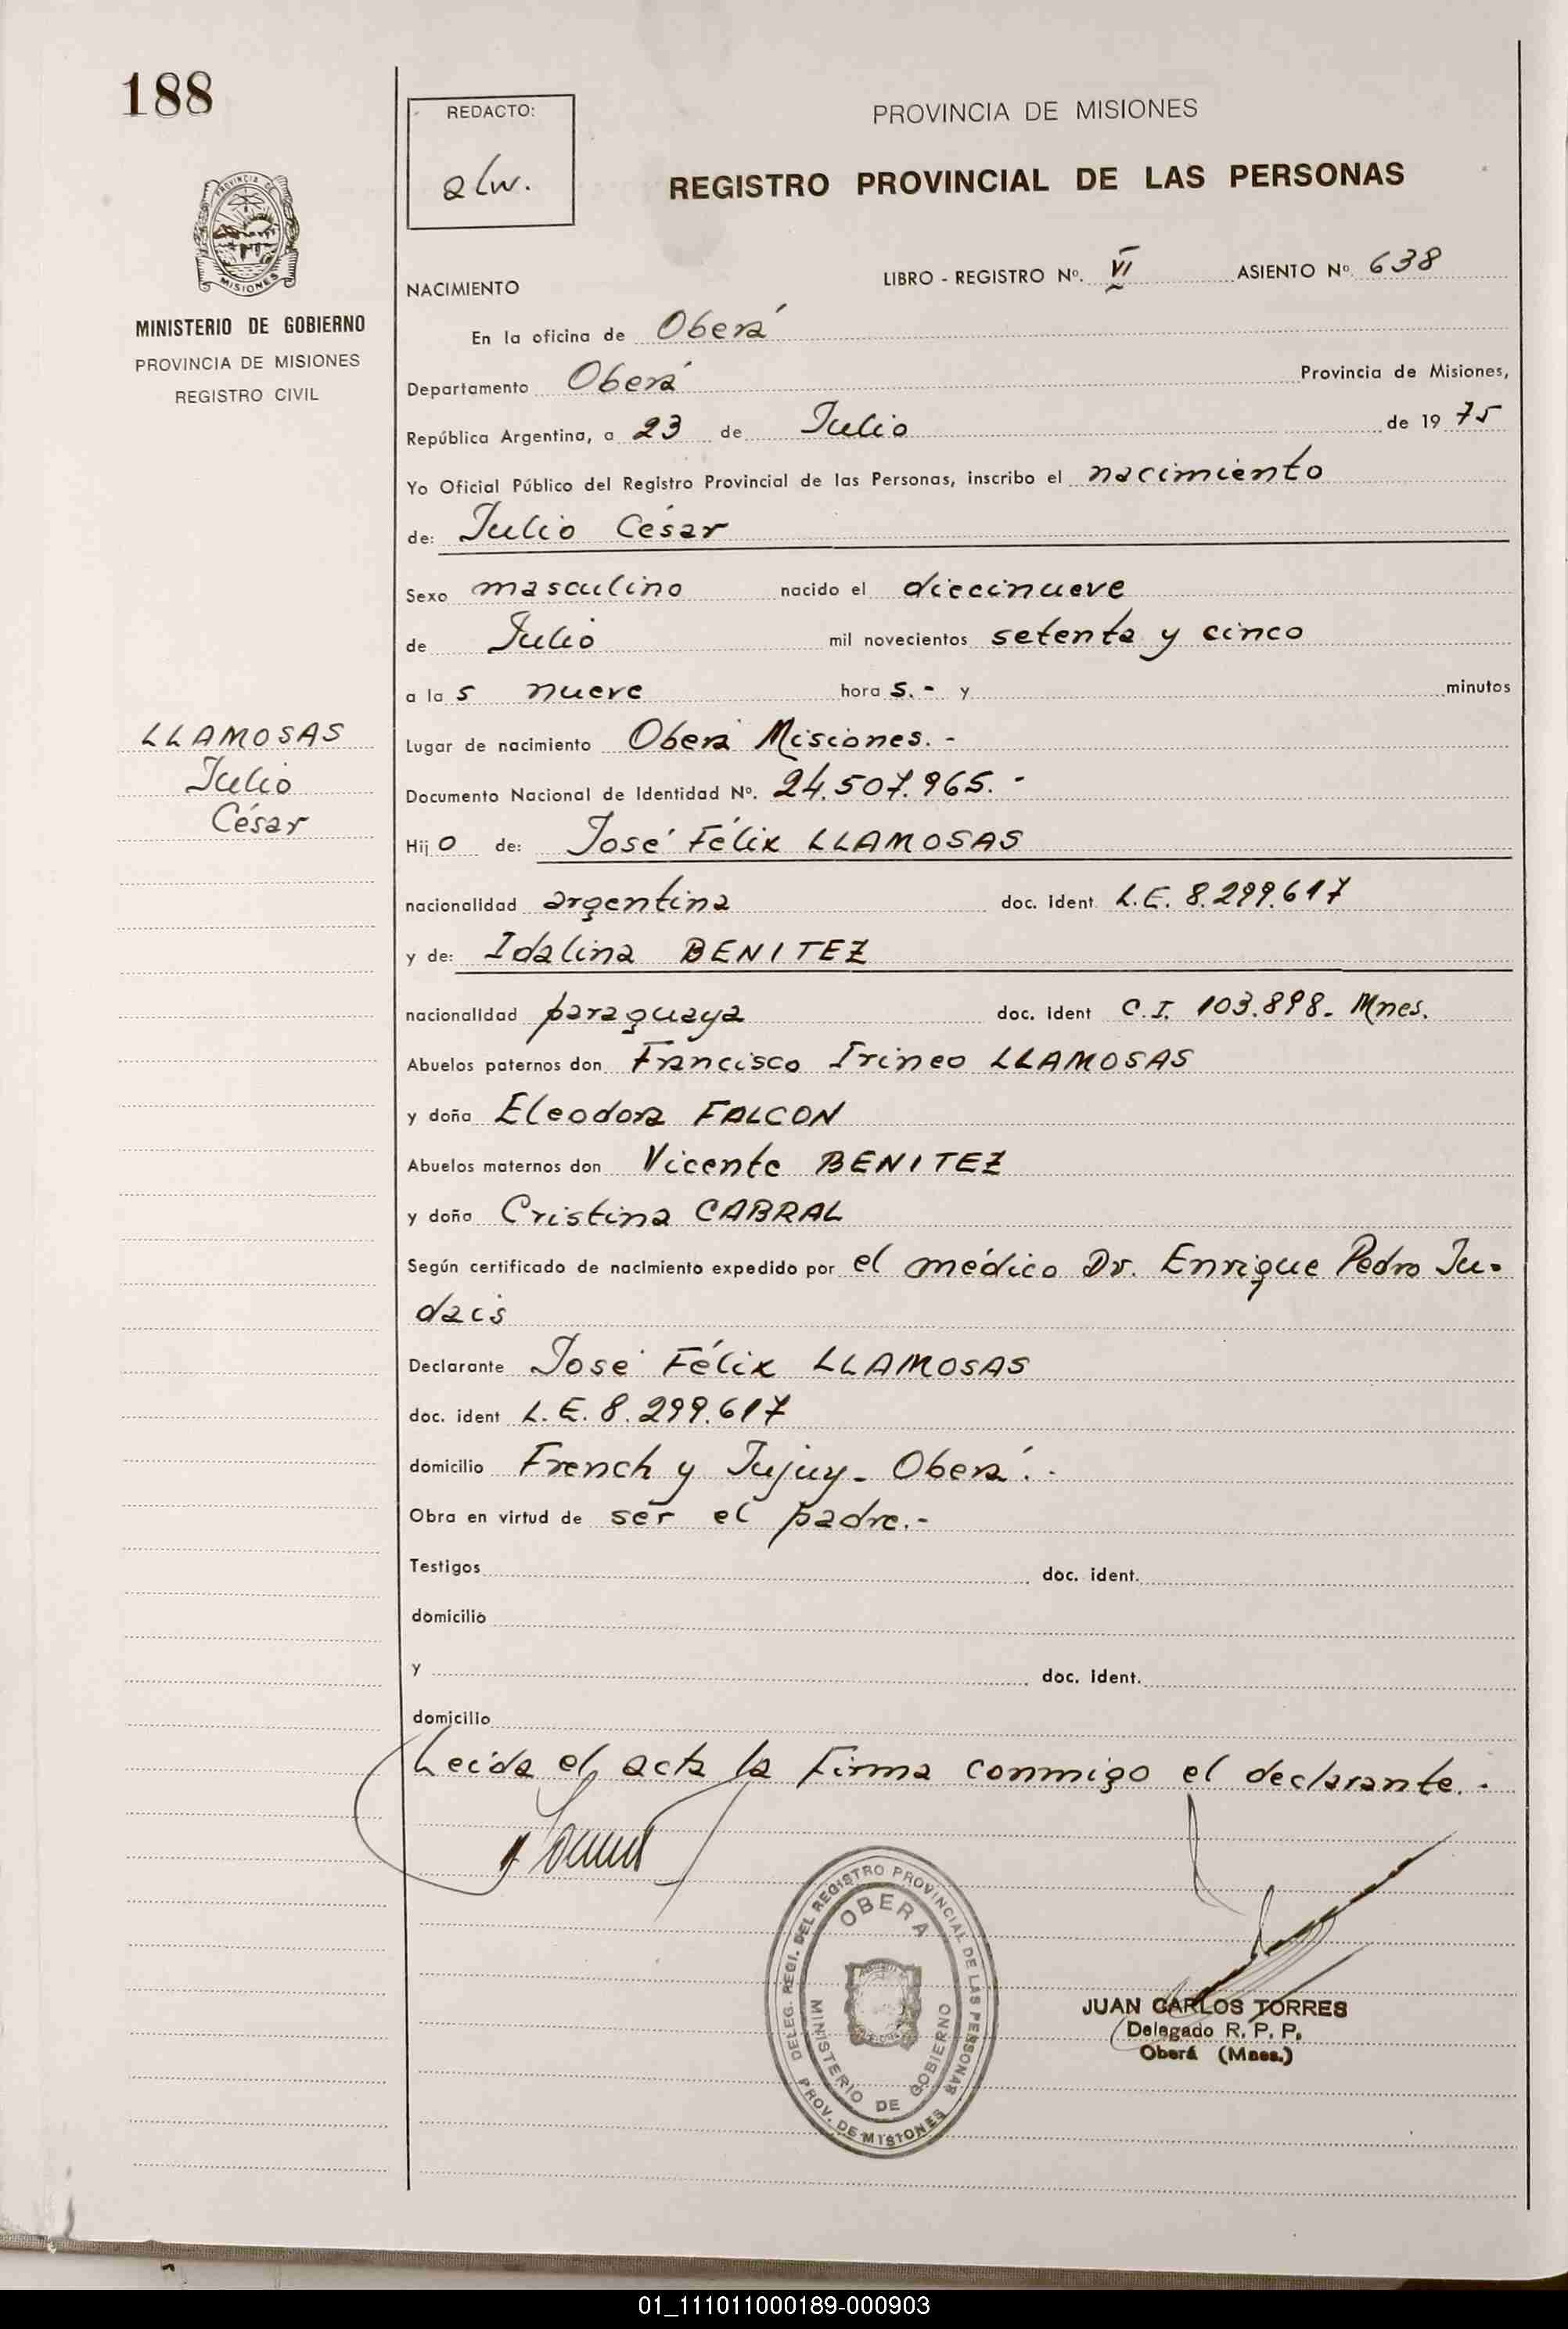 188
REDACTO:
alw.
PROVINCIA DE MISIONES
REGISTRO PROVINCIAL DE LAS PERSONAS
PROVINCIA DE
MISIONES
MINISTERIO DE GOBIERNO
PROVINCIA DE MISIONES
REGISTRO CIVIL
LIBRO - REGISTRO Nº. VI ASIENTO Nº. 638
NACIMIENTO
En la oficina de Oberá
Departamento Oberá Provincia de Misiones,
República Argentina, a 23 de Julio de 1975
Yo Oficial Público del Registro Provincial de las Personas, inscribo el nacimiento
de: Julio César
Sexo masculino nacido el diecinueve
de Julio mil novecientos setenta y cinco
a la s nueve hora s.- y minutos
LLAMOSAS
Julio
César
Lugar de nacimiento Oberá Misiones.-
Documento Nacional de Identidad Nº. 24.507.965.-
Hij o de: José Félix LLAMOSAS
nacionalidad argentina doc. ident L.E. 8.299.617
y de: Idalina BENITEZ
nacionalidad paraguaya doc. ident C.I. 103.898- Mnes.
Abuelos paternos don Francisco Irineo LLAMOSAS
y doña Eleodora FALCON
Abuelos maternos don Vicente BENITEZ
y doña Cristina CABRAL
Según certificado de nacimiento expedido por el médico Dr. Enrique Pedro Ju-
dacis
Declarante José Félix LLAMOSAS
doc. ident L.E. 8.299.617
domicilio French y Jujuy- Oberá.-
Obra en virtud de ser el padre.-
Testigos doc. ident.
domicilio
y doc. ident.
domicilio
Leída el acta la firma conmigo el declarante.-
DELEG. REGI. DEL REGISTRO PROVINCIAL DE LAS PERSONAS
OBERA
MINISTERIO DE GOBIERNO
PROV. DE MISIONES
JUAN CARLOS TORRES
Delegado R. P. P.
Oberá (Mnes.)
01_111011000189-000903